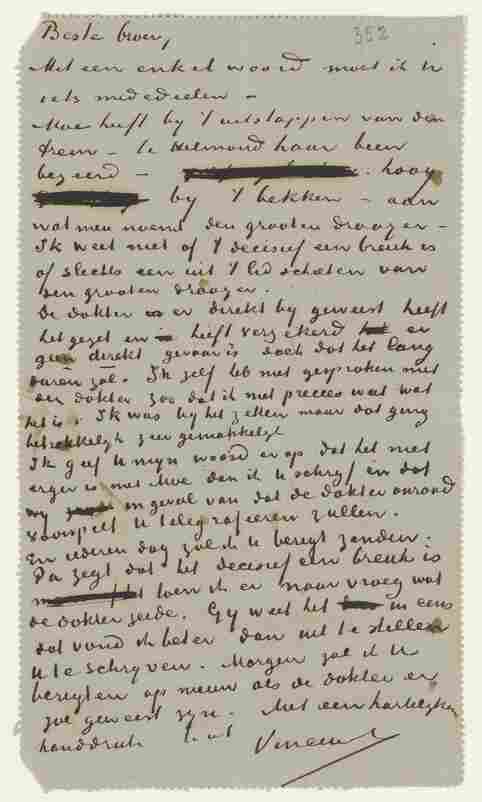 Beste broer,
352
Met een enkel woord moet ik U
iets mededeelen –
Moe heeft by 't uitstappen van den
trein – te Helmond haar been
bezeerd – hoog
by 't bekken – aan
wat men noemt den grooten draayer –
Ik weet niet of 't decisief een breuk is
of slechts een uit 't lid schieten van
den grooten draayer.
De dokter is er direkt by geweest heeft
het gezet en heeft verzekerd er
geen direkt gevaar is doch dat het lang
duren zal. Ik zelf heb niet gesproken met
den dokter zoo dat ik niet precies weet wat
het is. Ik was by het zetten maar dat ging
betrekkelyk zeer gemakkelyk
Ik geef U myn woord er op dat het niet
erger is met Moe dan ik U schryf en dat
wy in geval van dat de dokter onraad
voorspelt U telegrafieeren zullen.
En iederen dag zal ik U berigt zenden.
Pa zegt dat het decisief een breuk is
toen ik er naar vroeg wat
de dokter zeide. Gy weet het nu eens
dat vond ik beter dan uit te stellen
U te schryven. Morgen zal ik U
berigten op nieuw als de dokter er
zal geweest zyn. Met een hartelyken
handdruk t. à t. Vincent